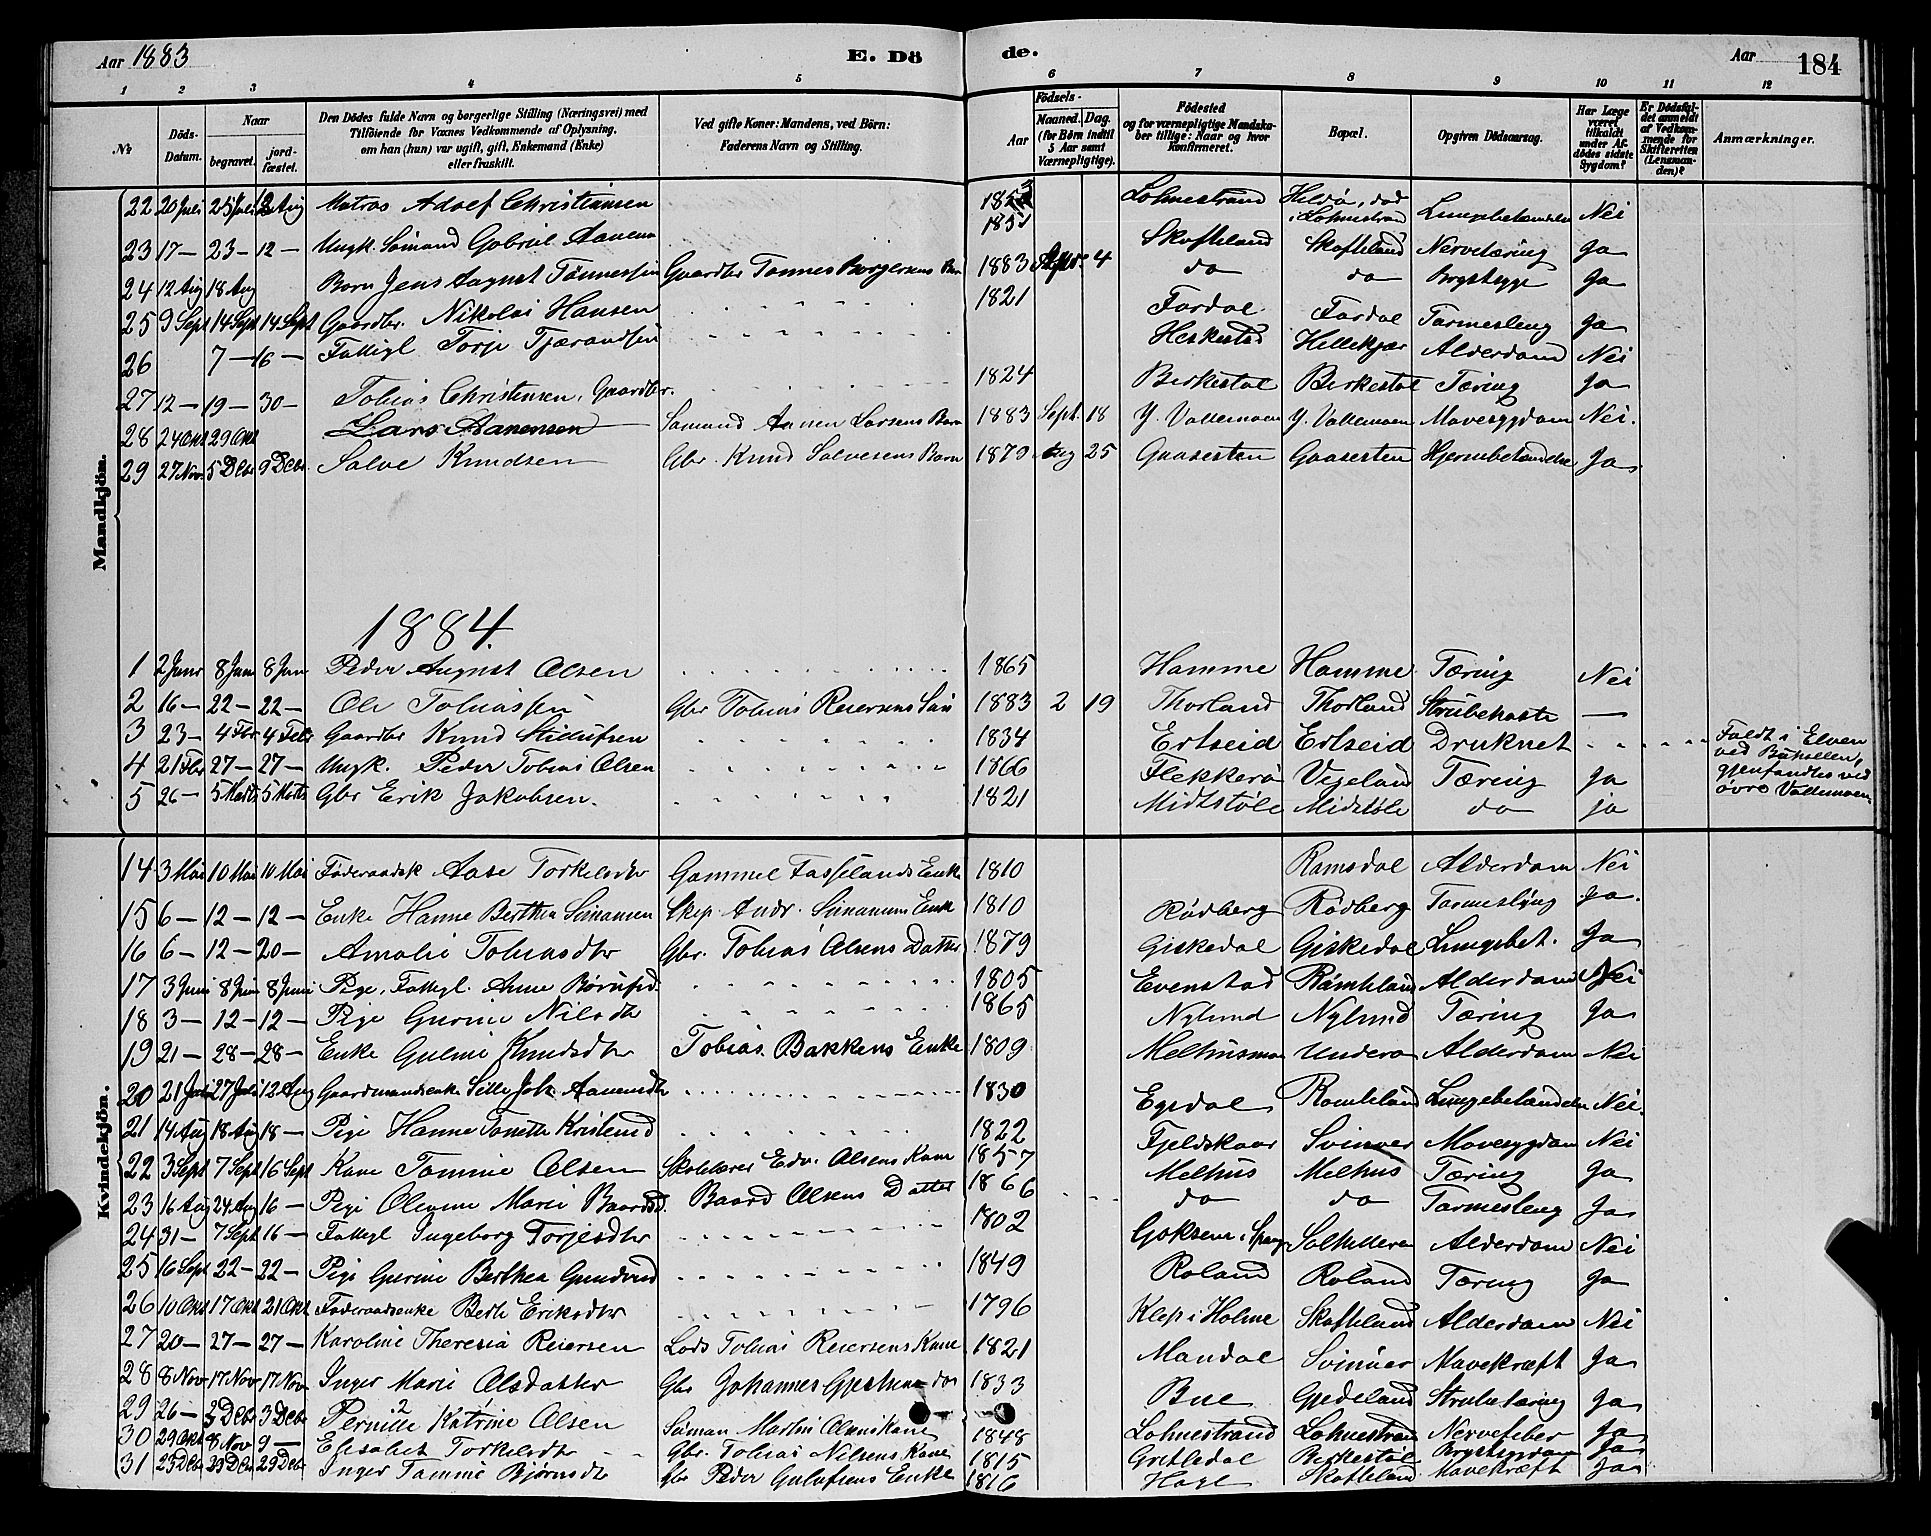 Aar 1883 E. Dö de. Aar 184
1 2 3 4 5 6 7 8 9 10 11 12
№ Döds-Datum. Naar begravet. jordfæstet. Den Dödes fulde Navn og borgerlige Stilling (Næringsvei) med Tilföiende for Voxnes Vedkommende af Oplysning, om han (hun) var ugift, gift, Enkemand (Enke) eller fraskilt. Ved gifte Koner: Mandens, ved Börn: Faderens Navn og Stilling. Födsels- Aar Maaned. Dag. (for Börn indtil 5 Aar samt Værnepligtige). Födested og for værnepligtige Mandskaber tillige: Naar og hvor konfirmeret. Bopæl. Opgiven Dödsaarsag. Har Læge været tilkaldt under Afdødes sidste Sygdom? Er Dödsfaldet anmeldt af Vedkommende for Skifteretten (Lensmanden)? Anmærkninger.
Mandkjön.
22 20 Juli 25 Juli 12 Aug Matros Adolf Christiansen 1853 Lohnestrand Hildö, død i Lohnestrand Lungebetændelse Nei
23 17 — 23 — 12 — Ungk. Sömand Gabriel Aanensen 1851 Skofteland Skofteland Nervetæring Ja
24 12 Aug 18 Aug Barn Jens August Tönnessen Gaardbr Tønnes Borgersens Barn 1883 4 do do Brystsyge Ja
25 9 Sept 14 Sept 14 Sept Gaardbr. Nikolai Hansen 1821 Fardal Fardal Tarmeslyng Ja
26 7 — 16 — Fattigl Torje Tjærandsen Heskestad Hellekjær Alderdom Nei
27 12 — 19 — 30 — Tobias Christensen, Gaardbr. 1824 Birkestøl Birkestøl Tæring Ja
28 24 Okt 29 Okt Lars Aanensen Sømand Aanen Larsens Barn 1883 Sept. 18 Y. Vallemoen Y. Vallemoen Mavesygdom Nei.
29 27 Nov. 5 Decbr 9 Decbr. Salve Knudsen Gbr. Knud Salvesens Barn 1879 Aug 25 Gaaserten Gaaserten Hjernebetændelse Ja
1884.
1 2 Janr 8 Jan 8 Jan Peder August Olsen 1865 Homme Homme Tæring Nei
2 16 — 22 — 22 — Ole Tobiassen Gbr Tobias Reiersens Søn 1883 2 19 Thorland Thorland Strubehoste —
3 23 — 4 Fbr 4 Febr Gaardbr Knud 1834 Ertseid Ertseid Druknet Faldt i Elven
4 21 Fbr 27 — 27 — Ungk. Peder Tobias Olsen 1866 Flekkerø Vegeland Tæring Ja ved gjenfandtes ved
5 26 — 5 Marts 5 Marts Gbr Erik Jakobsen. 1821 Midtstøle Midtstøle do ja øvre Vallemoen.
Kvindekjön.
14 3 Mai 10 Mai 10 Mai Føderaadsk Aase Torkelsdtr Gammel Fasselands Enke 1810 Ramsdal Alderdom Nei
15 6 — 12 — 12 — Enke Hanne Berthea Skip. Andr. Enke 1810 Rødberg Rødberg Tarmeslyng Ja.
16 6 — 12 — 20 — Amalie Tobiasdtr Gbr. Tobias Olsens Datter 1879 Giskedal Giskedal Lungebet. Ja
17 3 Juni 8 Juni 8 Juni Pige, Fattigl. Anne 1805 Evenstad Alderdom Nei
18 3 — 12 — 12 — Pige Gurine Nilsdtr 1865 Nylund Nylund Tæring Ja
19 21 — 28 — 28 — Enke Guline Knudsdtr Tobias Bakkens Enke 1809 Melhusmoen Underø Alderdom Nei
20 21 Juli 27 Juli 12 Aug Gaardmandsenke Sille Joh. Aanensdtr 1830 Egedal Lungebetændelse Nei.
21 14 Aug 18 Aug 18 — Pige Hanne Tonette 1822 Fjeldskaar Svinøer Mavesygdom Nei
22 3 Sept 7 Sept 16 Sept Kone Tomine Olsen Skolelærer Edv. Olsens Kone 1857 Melhus Melhus Tæring Ja
23 16 Aug 24 Aug 16 — Pige Olevine Marie Baardsd. Baard Olsens Datter 1866 do do Tarmeslyng Ja
24 31 — 7 Sept 16 — Fattigl Ingeborg Torjesdtr 1802 Alderdom Nei
25 16 Sept 22 — 22 — Pige Gurine Berthea 1849 Roland Roland Tæring Ja
26 10 Okt 17 Okt 21 Okt Føderaadsenke Berte Eriksdtr 1796 Klep i Holme Skofteland Alderdom Nei
27 20 — 27 — 27 — Karoline Theresia Reiersen Lods Tobias Reiersens Kone 1821 Mandal Svinøer Mavekræft Ja
28 8 Nov 17 Nov 17 Nov Inger Marie Olsdatter Gbr Johannes 1833 Bue Gjedeland Ja
29 26 — 3 Decbr 3 Decbr Pernille Katrine Olsen Sømand Martin Kone 1848 Lohnestrand Lohnestrand Nervefeber Ja
30 29 Okt 8 Nov 9 — Elisabet Torkelsdtr Gbr. Tobias Nilsens Kone 1815 Gretledal Birkestøl Brystsygdom Ja
31 23 Decbr 29 Decbr 29 Decbr Inger Tomine Bjørnsdtr Gbr Peder Gulufsens Enke 1816 Skofteland Mavekræft Ja